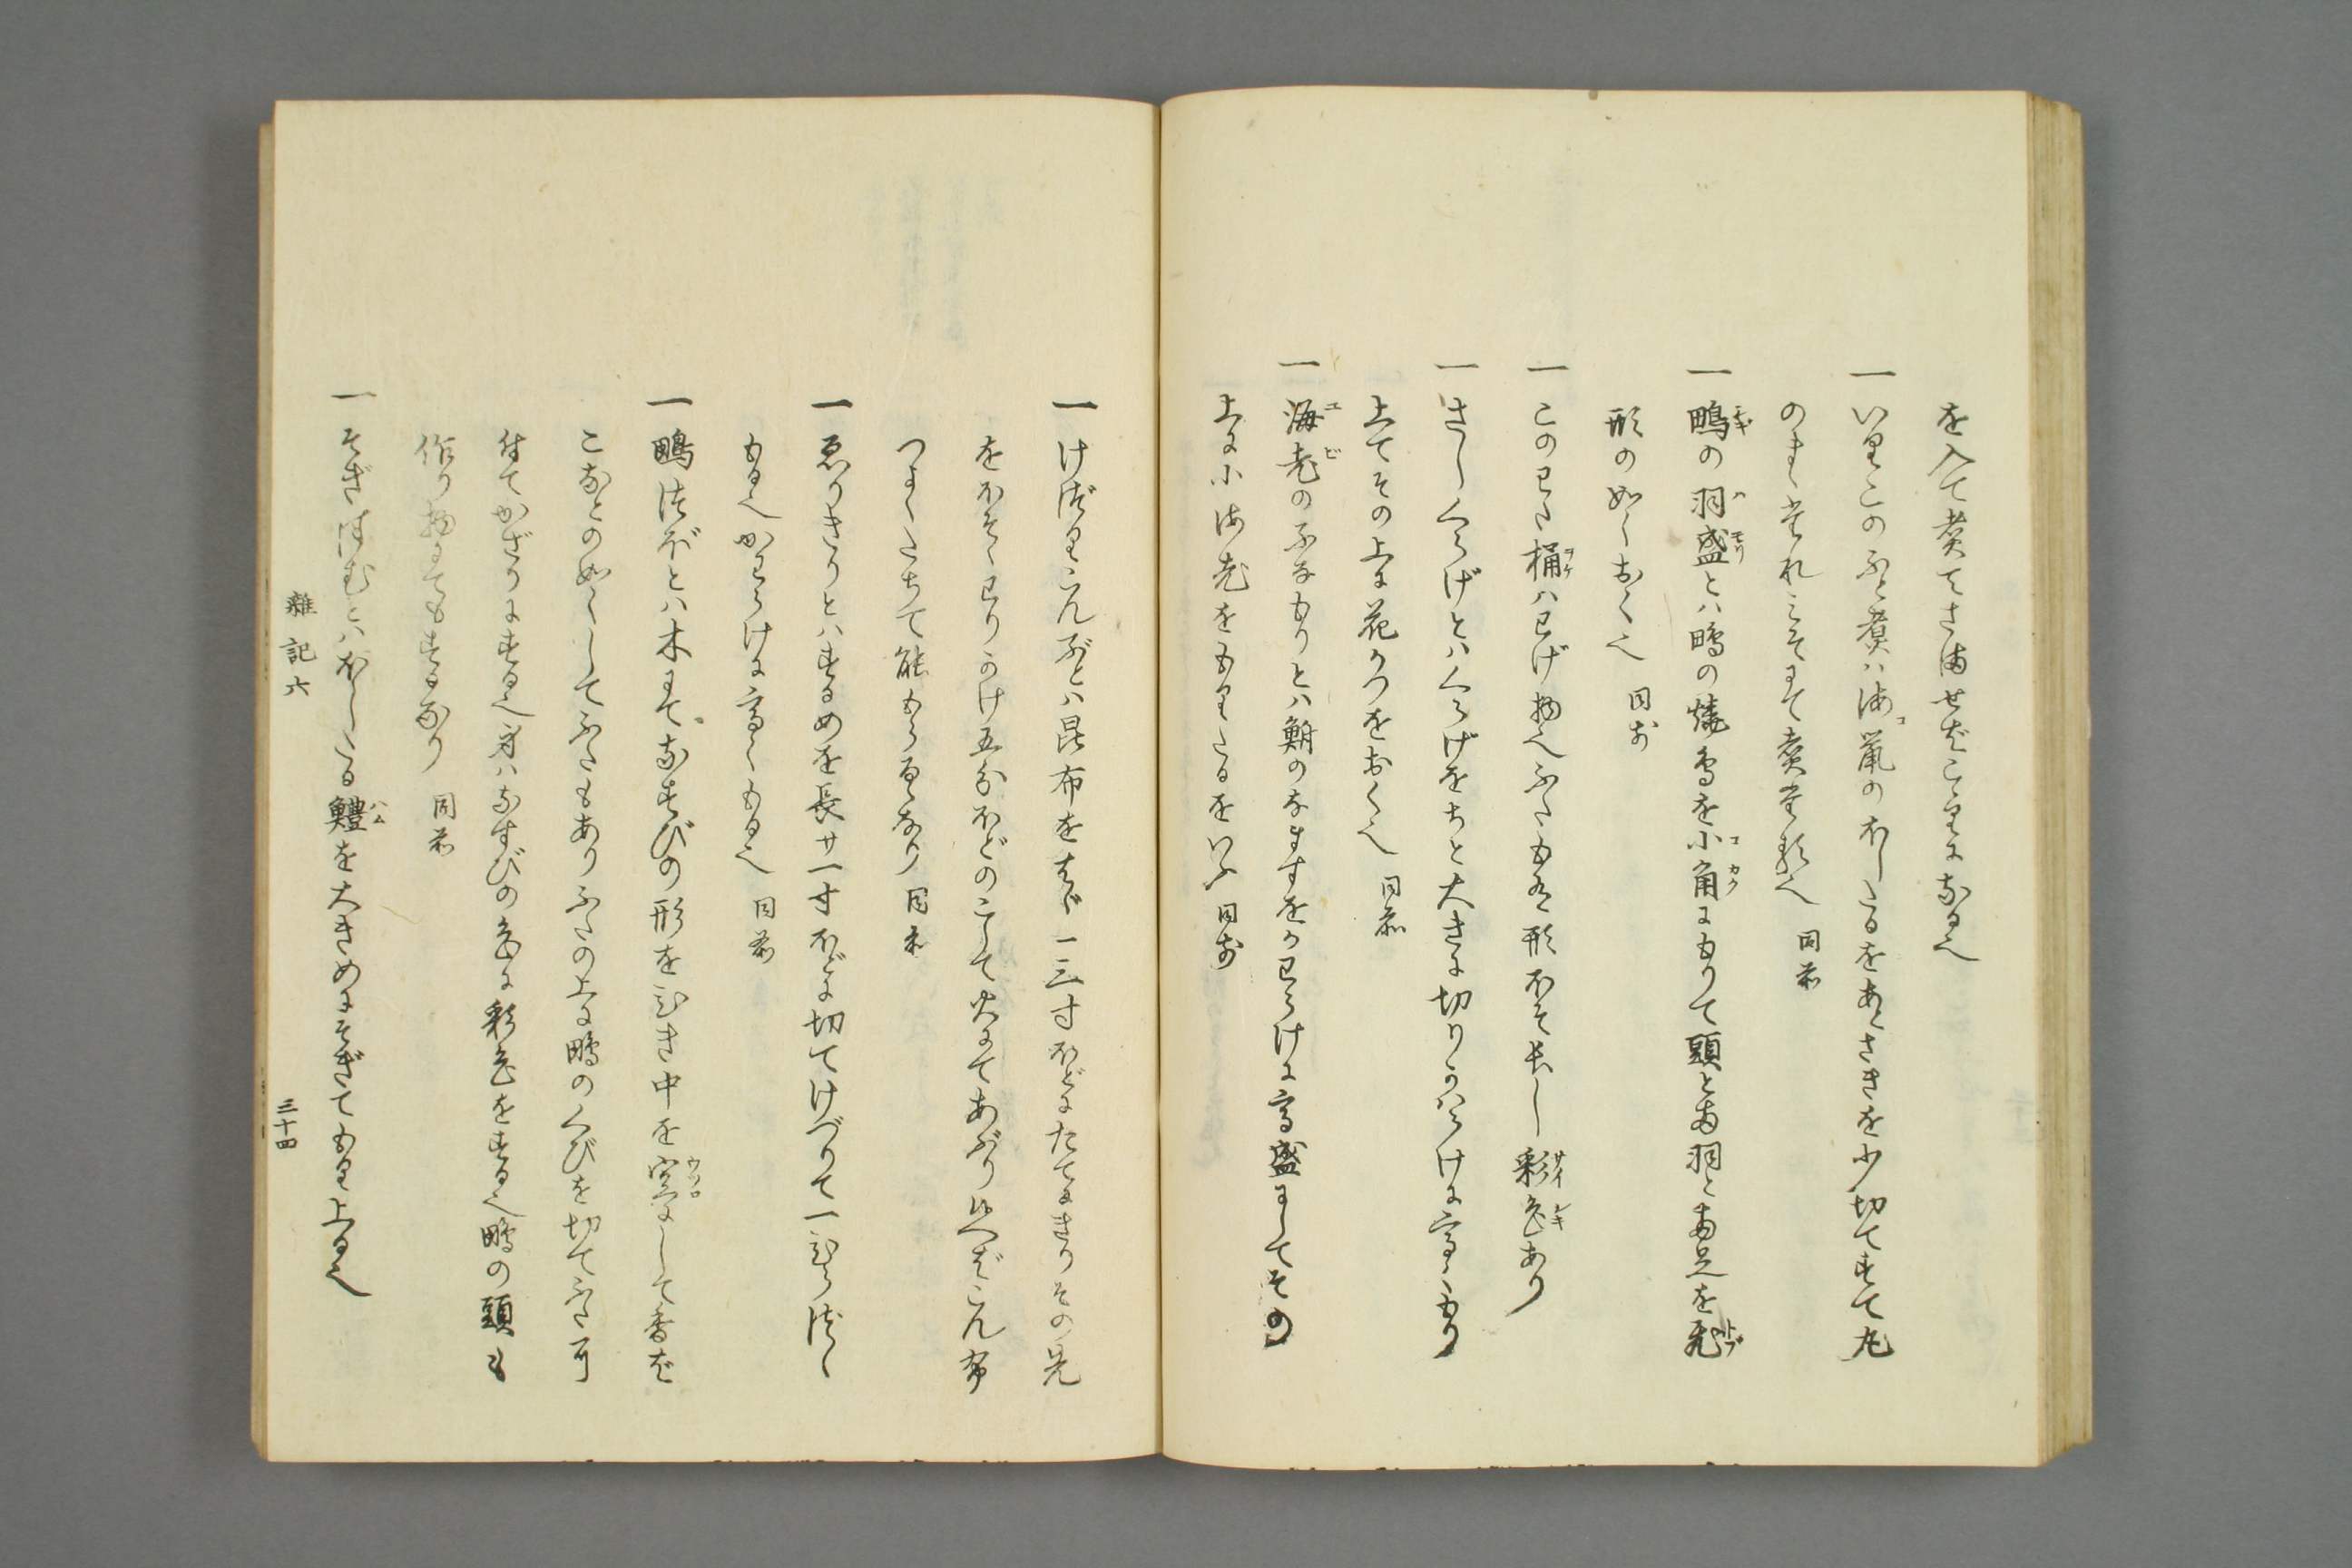 を入て煮てさませばこゞりになる也
一いりこのふと煮ハ海鼠の干したるをあとさきを少切てすて丸
のまゝたれみそにて煮たる也 同前
一鴫の羽盛とハ鴫の焼鳥を小角にもりて頭と両羽と両足を飛
形の如くおく也 同前
一このわた桶ハわげ物也ふたも有形ほそ長し彩色あり
一さしくらげとハくらげをちと大きに切りかハらけに高くもり
上てその上に花かつをおく也 同前
一海老のふなもりとハ鮒のなますをかわらけに高盛にしてその
上に小海老をもりたるをいふ 同前
一けづりこんぶとハ昆布をはゞ一二寸ほどにたてにきりその先
をほそくわりかけ五分ほどのこして火にてあぶり候へばこん布
つよくたちて能もらるゝなり 同前
一ゑりきりとハするめを長サ一寸ほどに切てけづりて一ひらづゝ
もる也かわらけに高くもる也 同前
一鴫つぼとハ木にてなすびの形をひき中を空にして香ば
こなとの如くしてふたもありふたの上に鴫のくびを切てふたに
付てかざりにする也身ハなすびの色に彩色をする也鴫の頭も
作り物にてもするなり 同前
一そぎはむとハほしたる鱧を大きめにそぎてもり上る也
雑記六
三十四